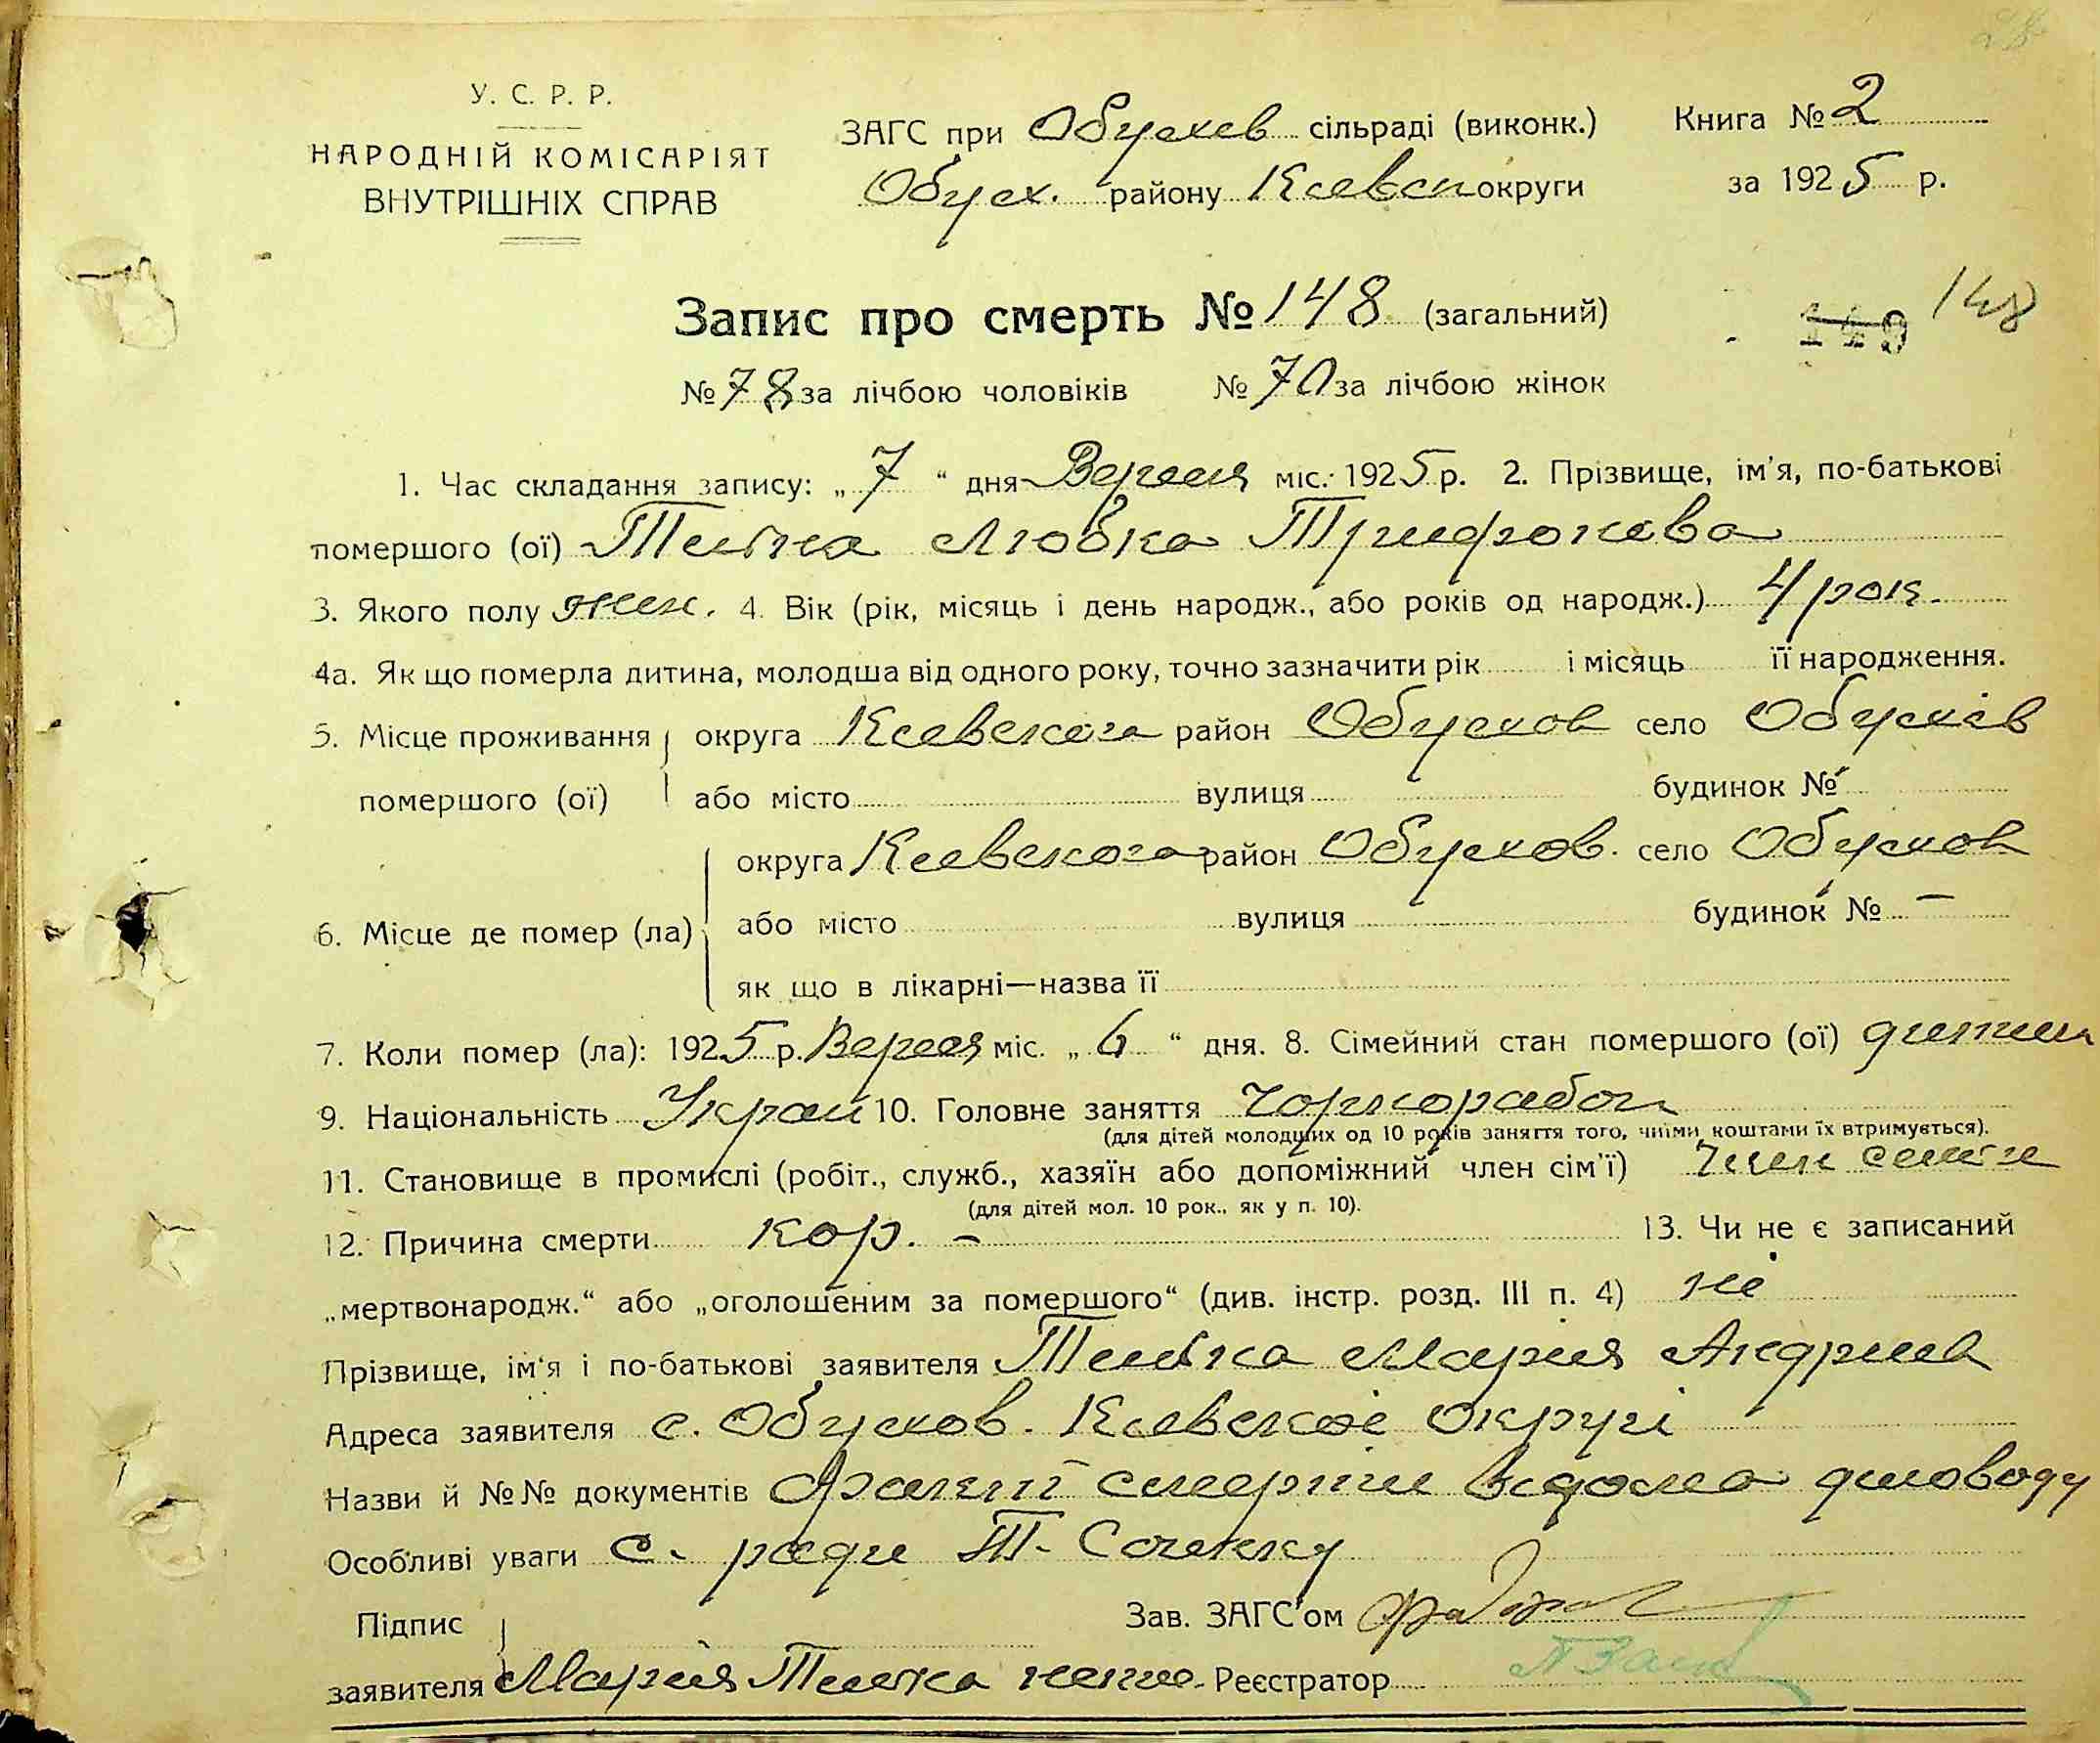 У. С. Р. Р.
НАРОДНІЙ КОМІСАРІЯТ
ВНУТРІШНІХ СПРАВ
ЗАГС при Обухов сільраді (виконк.) Книга № 2
Обух. району Киевск округи за 1925 р.
Запис про смерть № 148 (загальний) 149 148
№ 78 за лічбою чоловіків № 70 за лічбою жінок
1. Час складання запису: „7“ дня Вересня міс. 1925 р. 2. Прізвище, ім'я, по-батькові
помершого (ої) Любка Трифонова
3. Якого полу жен. 4. Вік (рік, місяць і день народж., або років од народж.) 4 рок.
4а. Як що померла дитина, молодша від одного року, точно зазначити рік і місяць її народження.
5. Місце проживання округа Киевского район Обухов село Обухів
помершого (ої) або місто вулиця будинок №
округа Киевского район Обухов. село Обухов
6. Місце де помер (ла) або місто вулиця будинок № —
як що в лікарні—назва її
7. Коли помер (ла): 1925 р. Вересня міс. „6“ дня. 8. Сімейний стан помершого (ої) дитина
9. Національність Украй 10. Головне заняття Чорнорабоч
(для дітей молодших од 10 років заняття того, чиїми коштами їх втримується).
11. Становище в промислі (робіт., служб., хазяїн або допоміжний член сім'ї) Член семьи
(для дітей мол. 10 рок., як у п. 10).
12. Причина смерти кор. — 13. Чи не є записаний
„мертвонародж.“ або „оголошеним за помершого“ (див. інстр. розд. III п. 4) ні
Прізвище, ім'я і по-батькові заявителя Мария Андриев
Адреса заявителя с. Обухов. Киевскоі Округі
Назви й №№ документів Факт смерти відома диловоду
Особливі уваги С. ради Т.
Підпис Зав. ЗАГС'ом
заявителя Мария Реєстратор